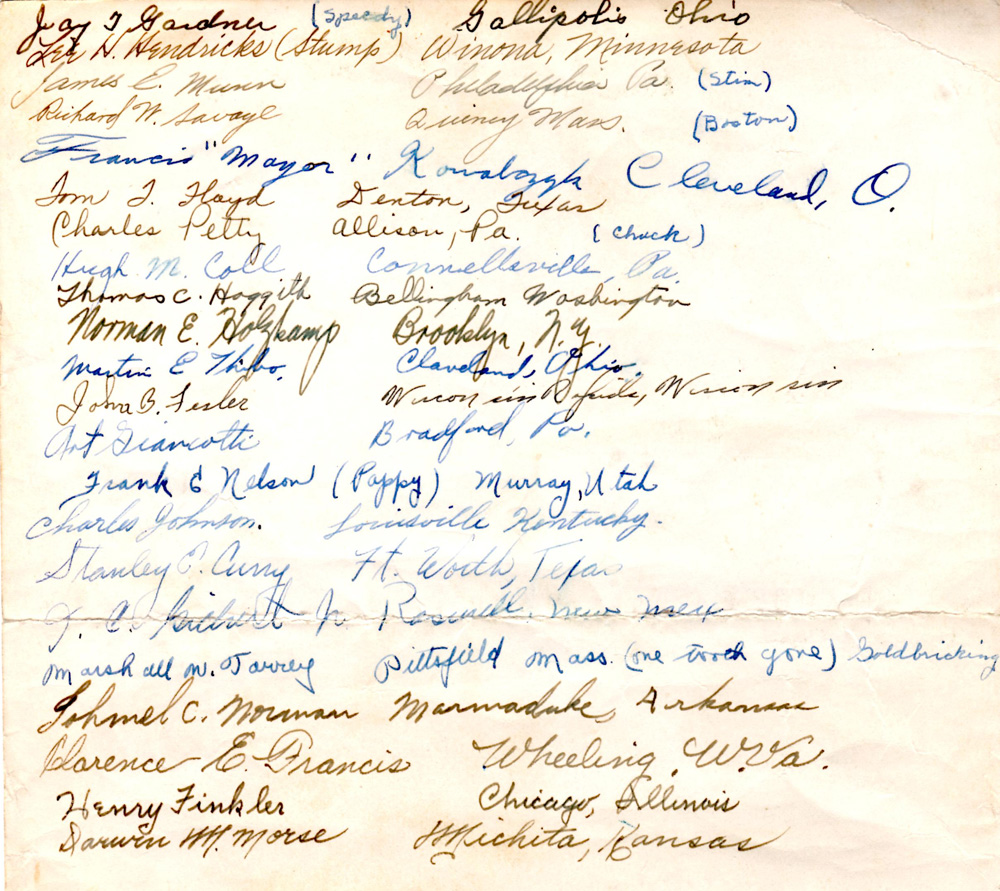 Jay T Gardner (Speedy) Gallipolis Ohio
Lee H. Hendricks (Stump) Winona, Minnesota
James E. Munn Philadelphia Pa. (Stim)
Richard W. Savage Quincy Mass. (Boston)
Francis "Mayor" Kowalczyk Cleveland, O.
Tom T. Floyd Denton, Texas
Charles Petty Allison, Pa. (Chuck)
Hugh M. Coll Connellsville, Pa.
Thomas C. Hoggith Bellingham Washington
Norman E. Holzkamp Brooklyn, N.Y.
Martin E Thibo. Claveland, Ohio.
John B. Fesler Wisconsin Rapids, Wisconsin
Art Giancotti Bradford, Pa.
Frank E Nelson (Pappy) Murray, Utah
Charles Johnson. Louisville Kentucky.
Stanley P. Curry Ft. Worth, Texas
J. C. Gilbert Jr Roswell, New Mex
Marshall M. Torrey Pittsfield Mass. (one tooth gone) Goldbricking
Lohmel C. Norman Marmaduke, Arkansas
Clarence E. Francis Wheeling, W.Va.
Henry Finkler Chicago, Illinois
Darwin M. Morse Wichita, Kansas